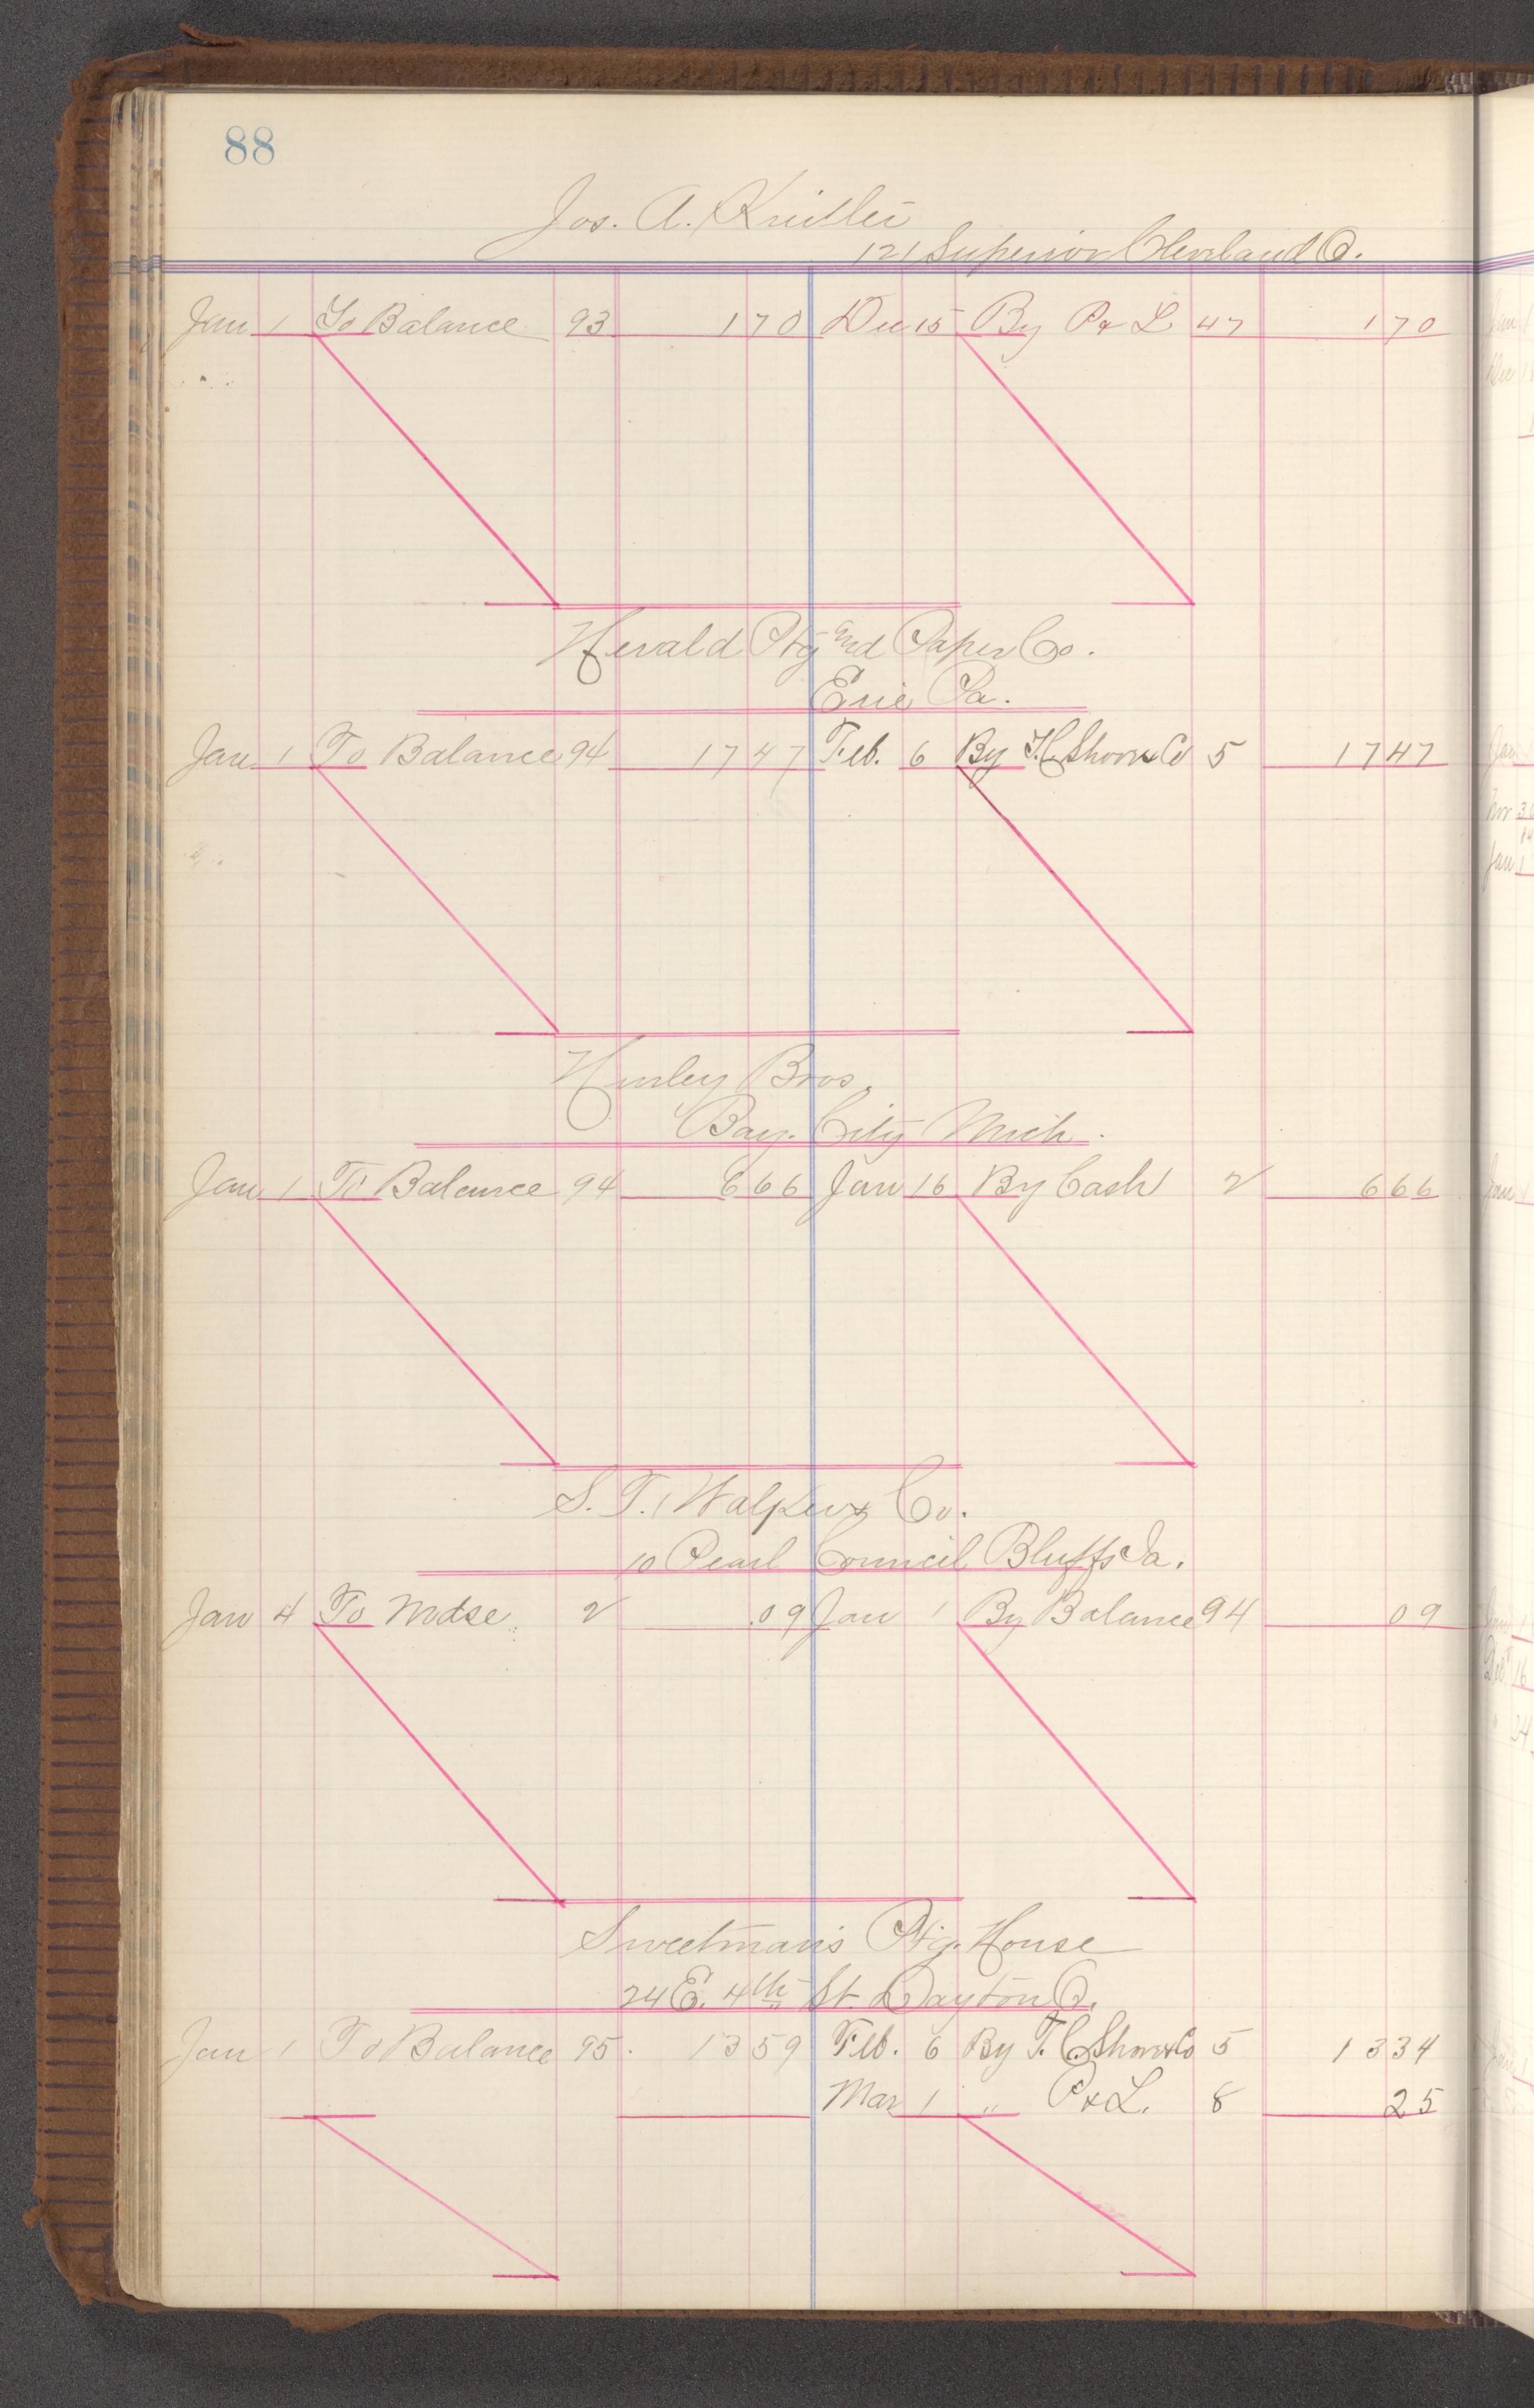 88
Jos. A.
121 Superior Cleveland O.
Jan 1 To Balance 93 1 70 Dec 15 By P & L 47 1 70
Herald Ptg and Paper Co.
Erie Pa.
Jan 1 To Balance 94 17 47 Feb. 6 By T. C. Shove & Co 5 17 47
Hurley Bros.
Bay City Mich.
Jan 1 To Balance 94 6 66 Jan 16 By Cash 2 6 66
S. T. Walker & Co.
10 Pearl Council Bluffs Ia.
Jan 4 To Mdse 2 .09 Jan 1 By Balance 94 09
Sweetman's Ptg. House
24 E. 4th St. Dayton O.
Jan 1 To Balance 95 13 59 Feb. 6 By T. C. Shove & Co 5 13 34
Mar 1 " P & L. 8 25